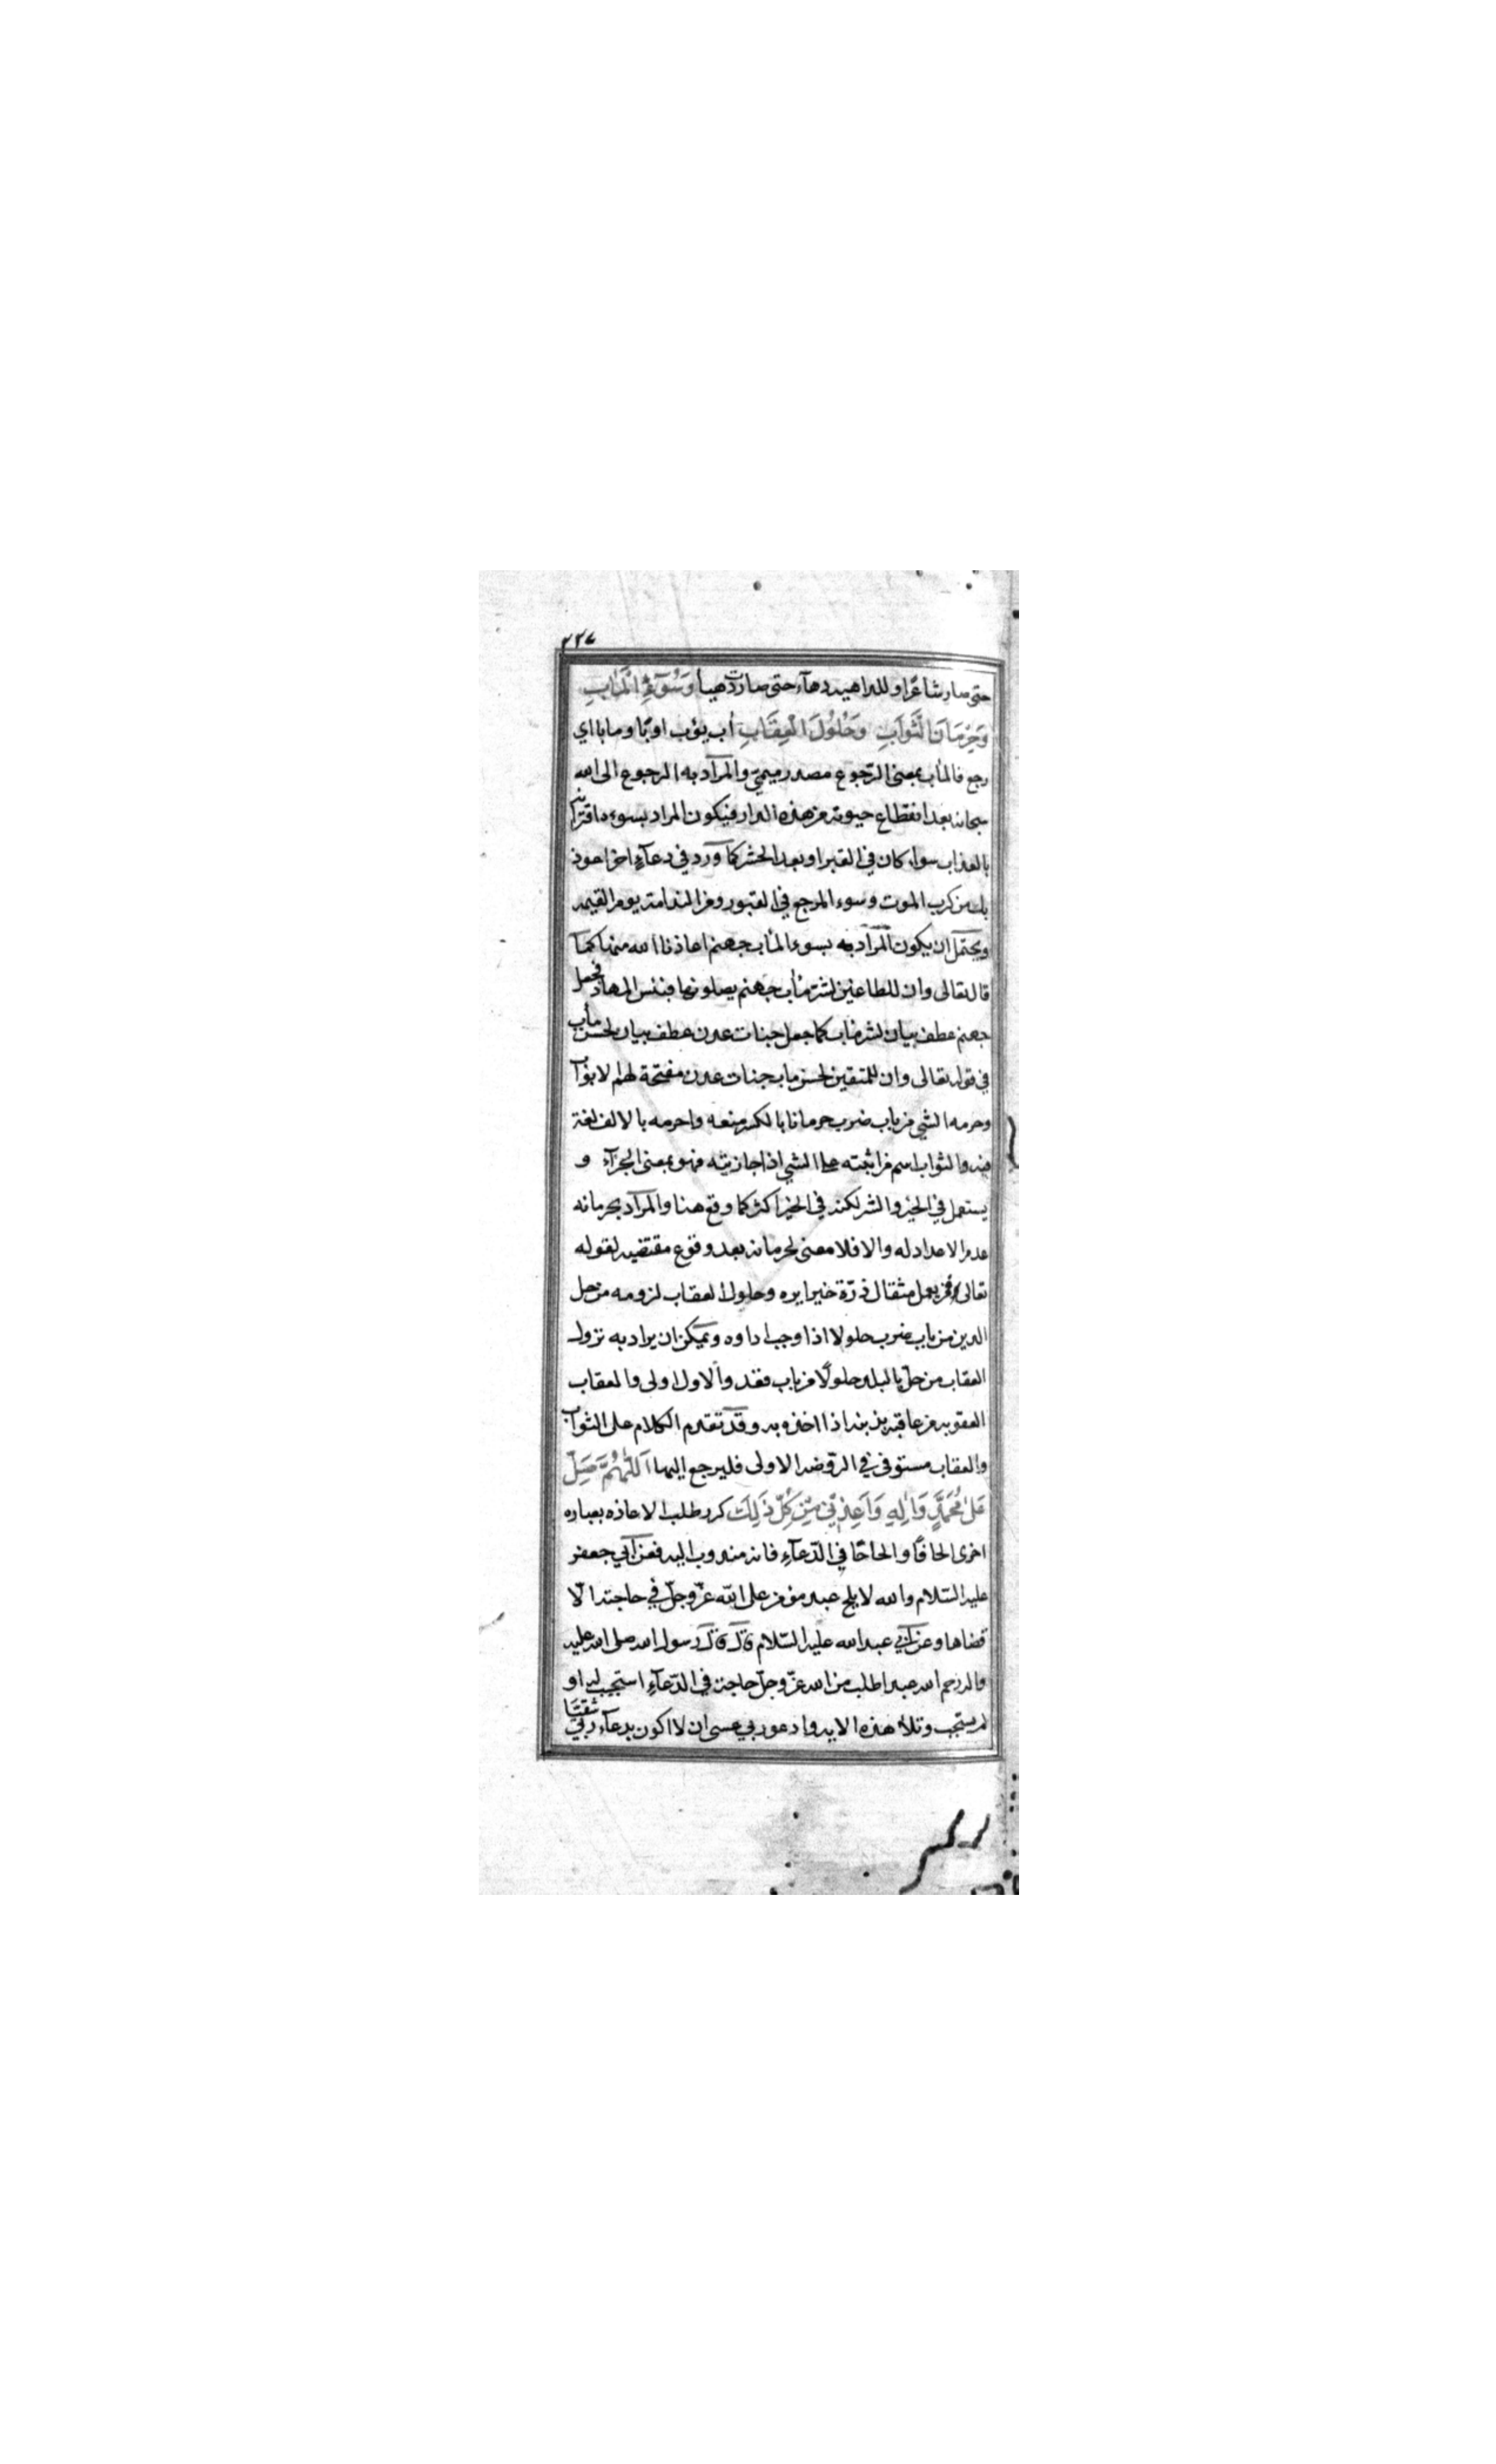 ٢٢٧
حتى صار شاعرا وللداهيه دهآء حتى صارت دهيا وَسُوٓءِ الْمَاٰبِ
وَحِرْمَانَ الثَّوَابِ وَحُلُولَ الْعِقَابِ اٰب يؤب اوبًا ومابا اي
رجع فالماٰب بمعنى الرّجوع مصدر ميميّ والمراد به الرجوع الى الله
سبحانه بعد انقطاع حيوته من هذه الدار فيكون المراد بسوءه اقترانه
بالعذاب سواء كان في القبر او بعد الحشر كما ورد في دعآءٍ اخر اعوذ
بك من كرب الموت وسوء المرجع في القبور ومن الندامة يوم القيمه
ويحتمل ان يكون المراد به بسوء الماٰب جهنم اعاذنا الله منها كما
قال تعالى وان للطاغين لشر ماٰب جهنم يصلونها فبئس المهاد فجعل
جهنم عطف بيان لشر ماٰب كما جعل جنات عدن عطف بيان لحسن ماٰب
في قوله تعالى وان للمتقين لحسن ماب جنات عدن مفتحة لهم الابواب
وحرمه الشي من باب ضرب حرمانا بالكسر منعه واحرمه بالالف لغة
فيه والثواب اسم من اثبته على الشي اذا جازيته فهو بمعنى الجزآء و
يستعمل في الخير والشر لكنه في الخير اكثر كما وقع هنا والمراد بحرمانه
عدم الاعداد له والا فلا معنى لحرمانه بعد وقوع مقتضيه لقوله
تعالى فمن يعمل مثقال ذرّة خيرا يره وحلول العقاب لزومه من حل
الدين من باب ضرب حلولا اذا وجب اداوه ويمكن ان يراد به نزول
العقاب من حلّ بالبلد حلولًا من باب قعد والاول اولى والعقاب
العقوبه من عاقبه بذنبه اذا اخذه به وقد تقدم الكلام على الثواب
والعقاب مستوفى في الرّوضه الاولى فليرجع اليها اَللّٰهُمَّ صَلِّ
عَلىٰ مُحَمَّدٍ وَاٰلِهِ وَاَعِذْنِي مِنْ كُلِّ ذٰلِكَ كرر طلب الاعاذه بعباره
اخرى الحافًا والحاحًا في الدّعآءِ فانه مندوب اليه فعن ابي جعفر
عليه السّلام والله لا يلح عبد مؤمن على الله عزّ وجلّ في حاجته الّا
قضاها وعن ابي عبد الله عليه السّلام قال قال رسول الله صلى الله عليه
واله رحم الله عبدا طلب من الله عزّ وجلّ حاجة في الدّعآءِ استجيب له او
لم يستجب وتلا هذه الايه وادعو ربي عسى ان لا اكون بدعآء ربّي شقيّا